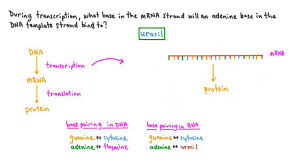 During transcription, what base in the mRNA strand will an adenine base in the
DNA template strand bind to?
uracil
DNA
transcription
mRNA
translation
protein
mRNA
protein
base pairing in DNA
guanine ↔ cytosine
adenine ↔ thymine
base pairing in RNA
guanine ↔ cytosine
adenine ↔ uracil